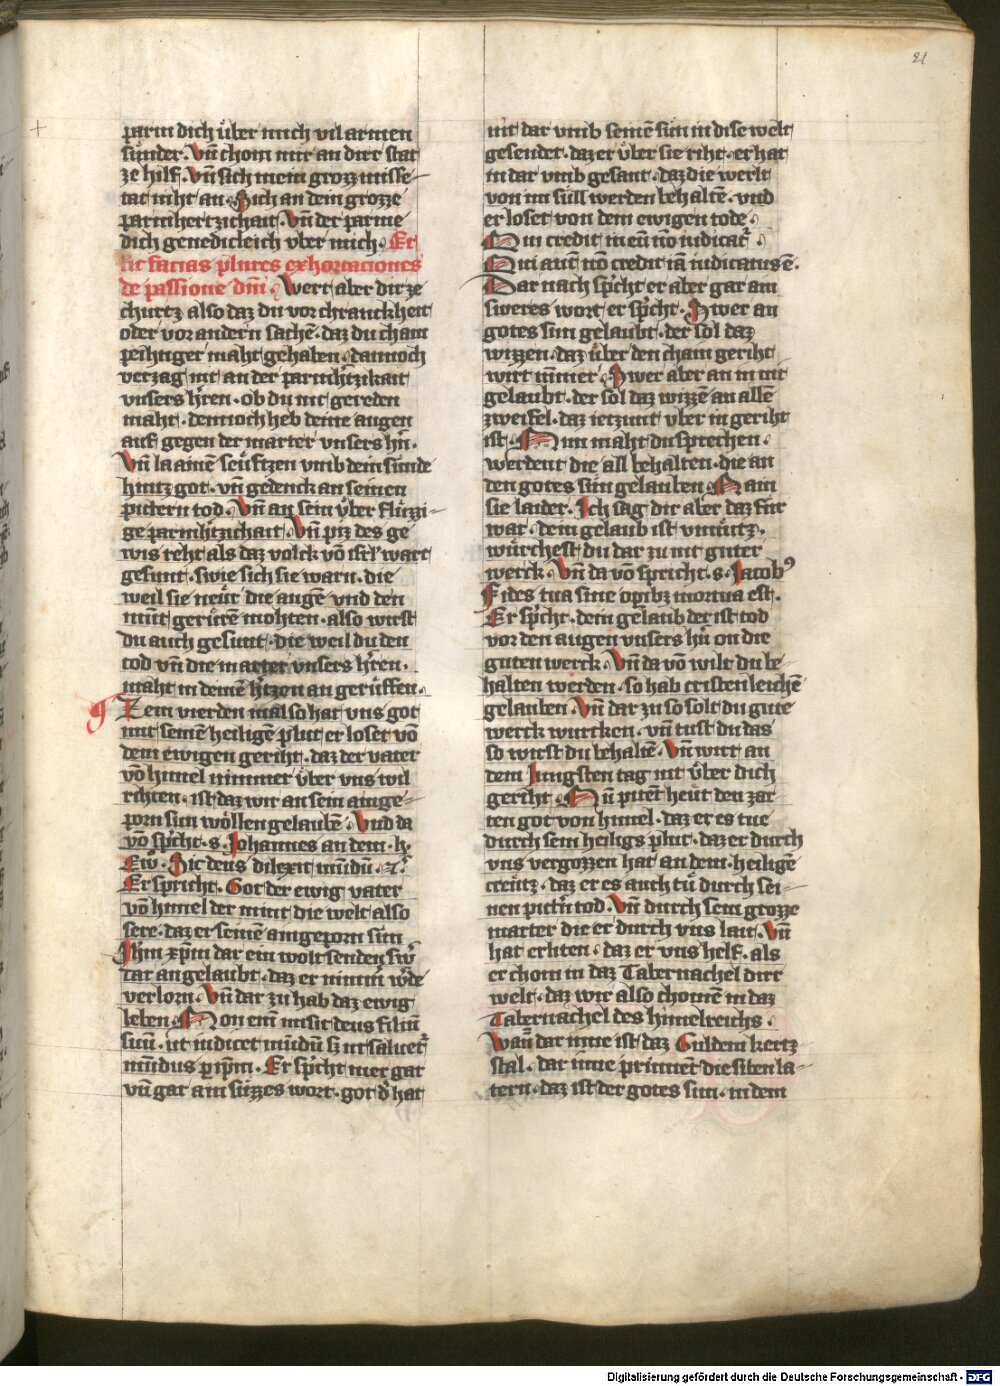 21
parm dich über mich vil armen
sünder. Vn̄ chom mir an dirr stat
ze hilf. Vn̄ sich mein groz misse-
tat niht an. Sich an dein grozze
parmhertzichait. Vn̄ der parme
dich genedicleich vber mich. Et
sic facias plures exhortaciones
de passione dn̄i. Wert aber dir ze
churtz also daz du vor chranckheit
oder vor andern sachē. daz du chain
peihtiger maht gehaben. dannoch
verzag nit an der parmh̓tzikait
vnsers h̓ren. ob du nit gereden
maht. dennoch heb deine augen
auf gegen der marter vnsers h̓n.
Vn̄ la ainē seüftzen vmb dein sünde
hintz got. Vn̄ gedenck an seinen
pittern tod. Vn̄ an sein über flüzzi-
ge parmh̓tzichait. Vn̄ piz des ge
wis reht als daz volck vō isrl̄ wart
gesunt. swie sich sie warn. die
weil sie neür die augē vnd den
mūt gerüren mohten. also wirst
du auch gesunt. die weil du den
tod vn̄ die marter vnsers h̓ren.
maht in deinē h̓tzen an gerüffen.
Zem vierden mal so hat vns got
mit seinē heiligē plut er loset vō
dem ewigen geriht. daz der vater
vō himel nimmer über vns wil
rihten. ist daz wir an sein ainge-
porn sun wöllen gelaubē. Vnd da
vō sp̓cht. s. Johannes an dem. h.
Ew̄. Sic deus dilexit mūdū. ⁊c̓.
Er spricht. Got der ewig vater
vō himel der mint die welt also
sere. daz er seinē aingeporn sun
Jhm̄ xp̄m dar ein wolt senden sw̓
dar an gelaubt. daz er nimm̓ w̓de
verlorn. Vn̄ dar zu hab daz ewig
leben. Non enī misit deus filiū
suū. ut iudicet mūdū sz ut saluet᷑
mūdus ꝑ ip̄m. Er sp̓cht mer gar
vn̄ gar ain süzzes wort. got d̓ hat
nit dar vmb seinē sun in dise welt
gesendet. daz er über sie riht. er hat
in dar vmb gesant. daz die werlt
von im süll werden behaltē. vnd
er loset von dem ewigen tode.
Qui credit in eū nō iudicat᷑.
Qui aut̄ nō credit iā iudicatus ē.
Dar nach sp̓cht er aber gar ain
sweres wort. er sp̓cht. Swer an
gotes sun gelaubt. der sol daz
wizzen. daz über den chain geriht
wirt nimmer. Swer aber an in nit
gelaubt. der sol daz wizzē an allē
zweifel. daz ietzunt vber in geriht
ist. Nun maht du sprechen.
werdent die all behalten. die an
den gotes sun gelauben. Nain
sie laider. Ich sag dir aber daz für
war. dein gelaub ist vnnütz.
würchest du dar zu nit guter
werck. Vn̄ da vō spricht. s. Jacob᷒
Fides tua sine opibz mortua est.
Er sp̓cht. dein gelaub der ist tod
vor den augen vnsers h̓n on die
guten werck. Vn̄ da vō wilt du be-
halten werden. so hab cristenleichē
gelauben. Vn̄ dar zu so solt du gute
werck wurcken. vn̄ tust du das
so wirst du behaltē. Vn̄ wirt an
dem Jungsten tag nit über dich
geriht. Nu pitet heüt den zar
ten got von himel. daz er es tue
durch sein heiligs plut. daz er durch
vns vergozzen hat an dem. heiligē
creütz. daz er es auch tü durch sei-
nen pitt̓n tod. Vn̄ durch sein grozze
marter die er durch vns lait. Vn̄
hat erliten. daz er vns helf. als
er chom in daz Tabernachel dirr
welt. daz wir also chomē in daz
Tabernachel des himelreichs.
Wan̄ dar inne ist daz Guldein kertz-
stal. dar inne prinnēt die siben la-
tern. daz ist der gotes sun. in dem